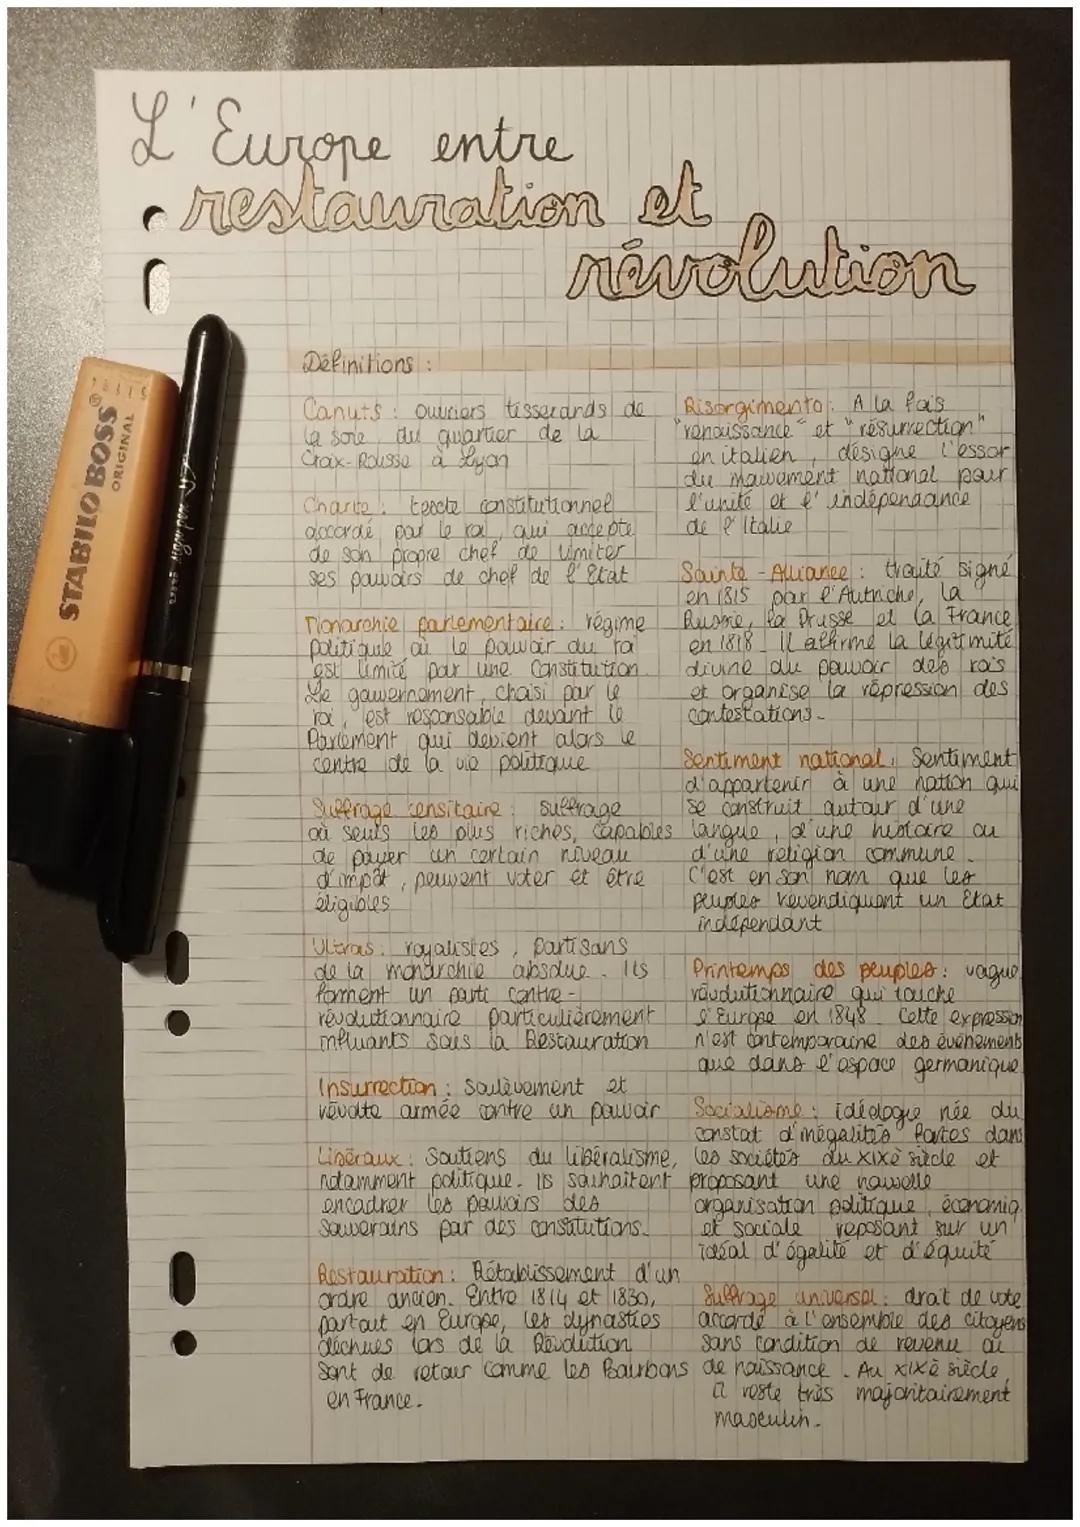 L'Europe entre
restauration et
révolution
STABILO BOSS
ORIGINAL
Définitions :
Canuts : ouvriers tisserands de
la soie du quartier de la
Croix-Rousse à Lyon
Charte : texte constitutionnel
accordé par le roi, qui accepte
de son propre chef de limiter
ses pouvoirs de chef de l'Etat
Monarchie parlementaire : régime
politique où le pouvoir du roi
est limité par une Constitution.
Le gouvernement, choisi par le
roi, est responsable devant le
Parlement qui devient alors le
centre de la vie politique
Suffrage censitaire : suffrage
où seuls les plus riches, capables
de payer un certain niveau
d'impôt, peuvent voter et être
éligibles
Ultras : royalistes, partisans
de la monarchie absolue. Ils
forment un parti contre-
révolutionnaire particulièrement
influants sous la Restauration
Insurrection : Soulèvement et
révolte armée contre un pouvoir
Libéraux : Soutiens du libéralisme,
notamment politique. Ils souhaitent
encadrer les pouvoirs des
souverains par des constitutions.
Restauration : Rétablissement d'un
ordre ancien. Entre 1814 et 1830,
partout en Europe, les dynasties
déchues lors de la Révolution
sont de retour comme les Bourbons
en France.
Risorgimento : A la fois
"renaissance" et "résurrection"
en italien, désigne l'essor
du mouvement national pour
l'unité et l'indépendance
de l'Italie
Sainte-Alliance : traité signé
en 1815 par l'Autriche, la
Russie, la Prusse et la France
en 1818. Il affirme la légitimité
divine du pouvoir des rois
et organise la répression des
contestations.
Sentiment national : Sentiment
d'appartenir à une nation qui
se construit autour d'une
langue, d'une histoire ou
d'une religion commune.
C'est en son nom que les
peuples revendiquent un Etat
indépendant
Printemps des peuples : vague
révolutionnaire qui touche
l'Europe en 1848. Cette expression
n'est contemporaine des événements
que dans l'espace germanique.
Socialisme : idéologie née du
constat d'inégalités fortes dans
les sociétés du XIXè siècle et
proposant une nouvelle
organisation politique, économiq
et sociale reposant sur un
idéal d'égalité et d'équité
Suffrage universel : droit de vote
accordé à l'ensemble des citoyens
sans condition de revenu ou
de naissance. Au XIXè siècle,
il reste très majoritairement
masculin.